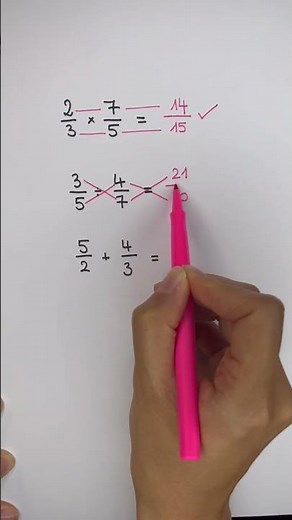 2/3 × 7/5 = 14/15 ✓
3/5 ÷ 4/7 = 21
5/2 + 4/3 =